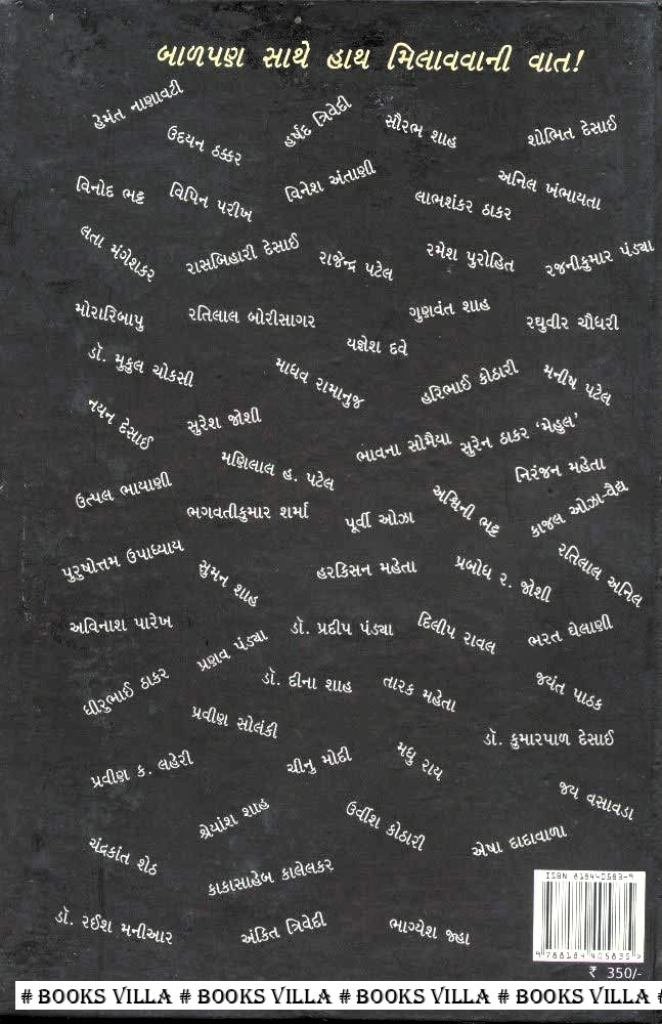 બાળપણ સાથે હાથ મિલાવવાની વાત!
હેમંત નાણાવટી
ઉદયન ઠક્કર
હર્ષદ ત્રિવેદી
સૌરભ શાહ
શોભિત દેસાઈ
વિનોદ ભટ્ટ
વિપિન પરીખ
વિનેશ અંતાણી
લાભશંકર ઠાકર
અનિલ ખંભાયતા
લતા મંગેશકર
રાસબિહારી દેસાઈ
રાજેન્દ્ર પટેલ
રમેશ પુરોહિત
રજનીકુમાર પંડ્યા
મોરારિબાપુ
રતિલાલ બોરીસાગર
યજ્ઞેશ દવે
ગુણવંત શાહ
રઘુવીર ચૌધરી
ડૉ. મુકુલ ચોકસી
માધવ રામાનુજ
હરિભાઈ કોઠારી
મનીષ પટેલ
નયન દેસાઈ
સુરેશ જોશી
ભાવના સોમૈયા
સુરેન ઠાકર ‘મેહુલ’
મણિલાલ હ. પટેલ
નિરંજન મહેતા
ઉત્પલ ભાયાણી
ભગવતીકુમાર શર્મા
પૂર્વી ઓઝા
અશ્વિની ભટ્ટ
કાજલ ઓઝા-વૈદ્ય
પુરુષોત્તમ ઉપાધ્યાય
સુમન શાહ
હરકિસન મહેતા
પ્રબોધ ર. જોશી
રતિલાલ અનિલ
અવિનાશ પારેખ
પ્રણવ પંડ્યા
ડૉ. પ્રદીપ પંડ્યા
દિલીપ રાવલ
ભરત ઘેલાણી
ધીરુભાઈ ઠાકર
ડૉ. દીના શાહ
તારક મહેતા
જયંત પાઠક
પ્રવીણ સોલંકી
ડૉ. કુમારપાળ દેસાઈ
પ્રવીણ ક. લહેરી
ચીનુ મોદી
મધુ રાય
જય વસાવડા
ચંદ્રકાંત શેઠ
શ્રેયાંશ શાહ
ઉર્વીશ કોઠારી
એષા દાદાવાળા
કાકાસાહેબ કાલેલકર
ડૉ. રઈશ મનીઆર
અંકિત ત્રિવેદી
ભાગ્યેશ જ્હા
ISBN 818440583-9
9 788184 405835
₹ 350/-
# BOOKS VILLA # BOOKS VILLA # BOOKS VILLA # BOOKS VILLA #